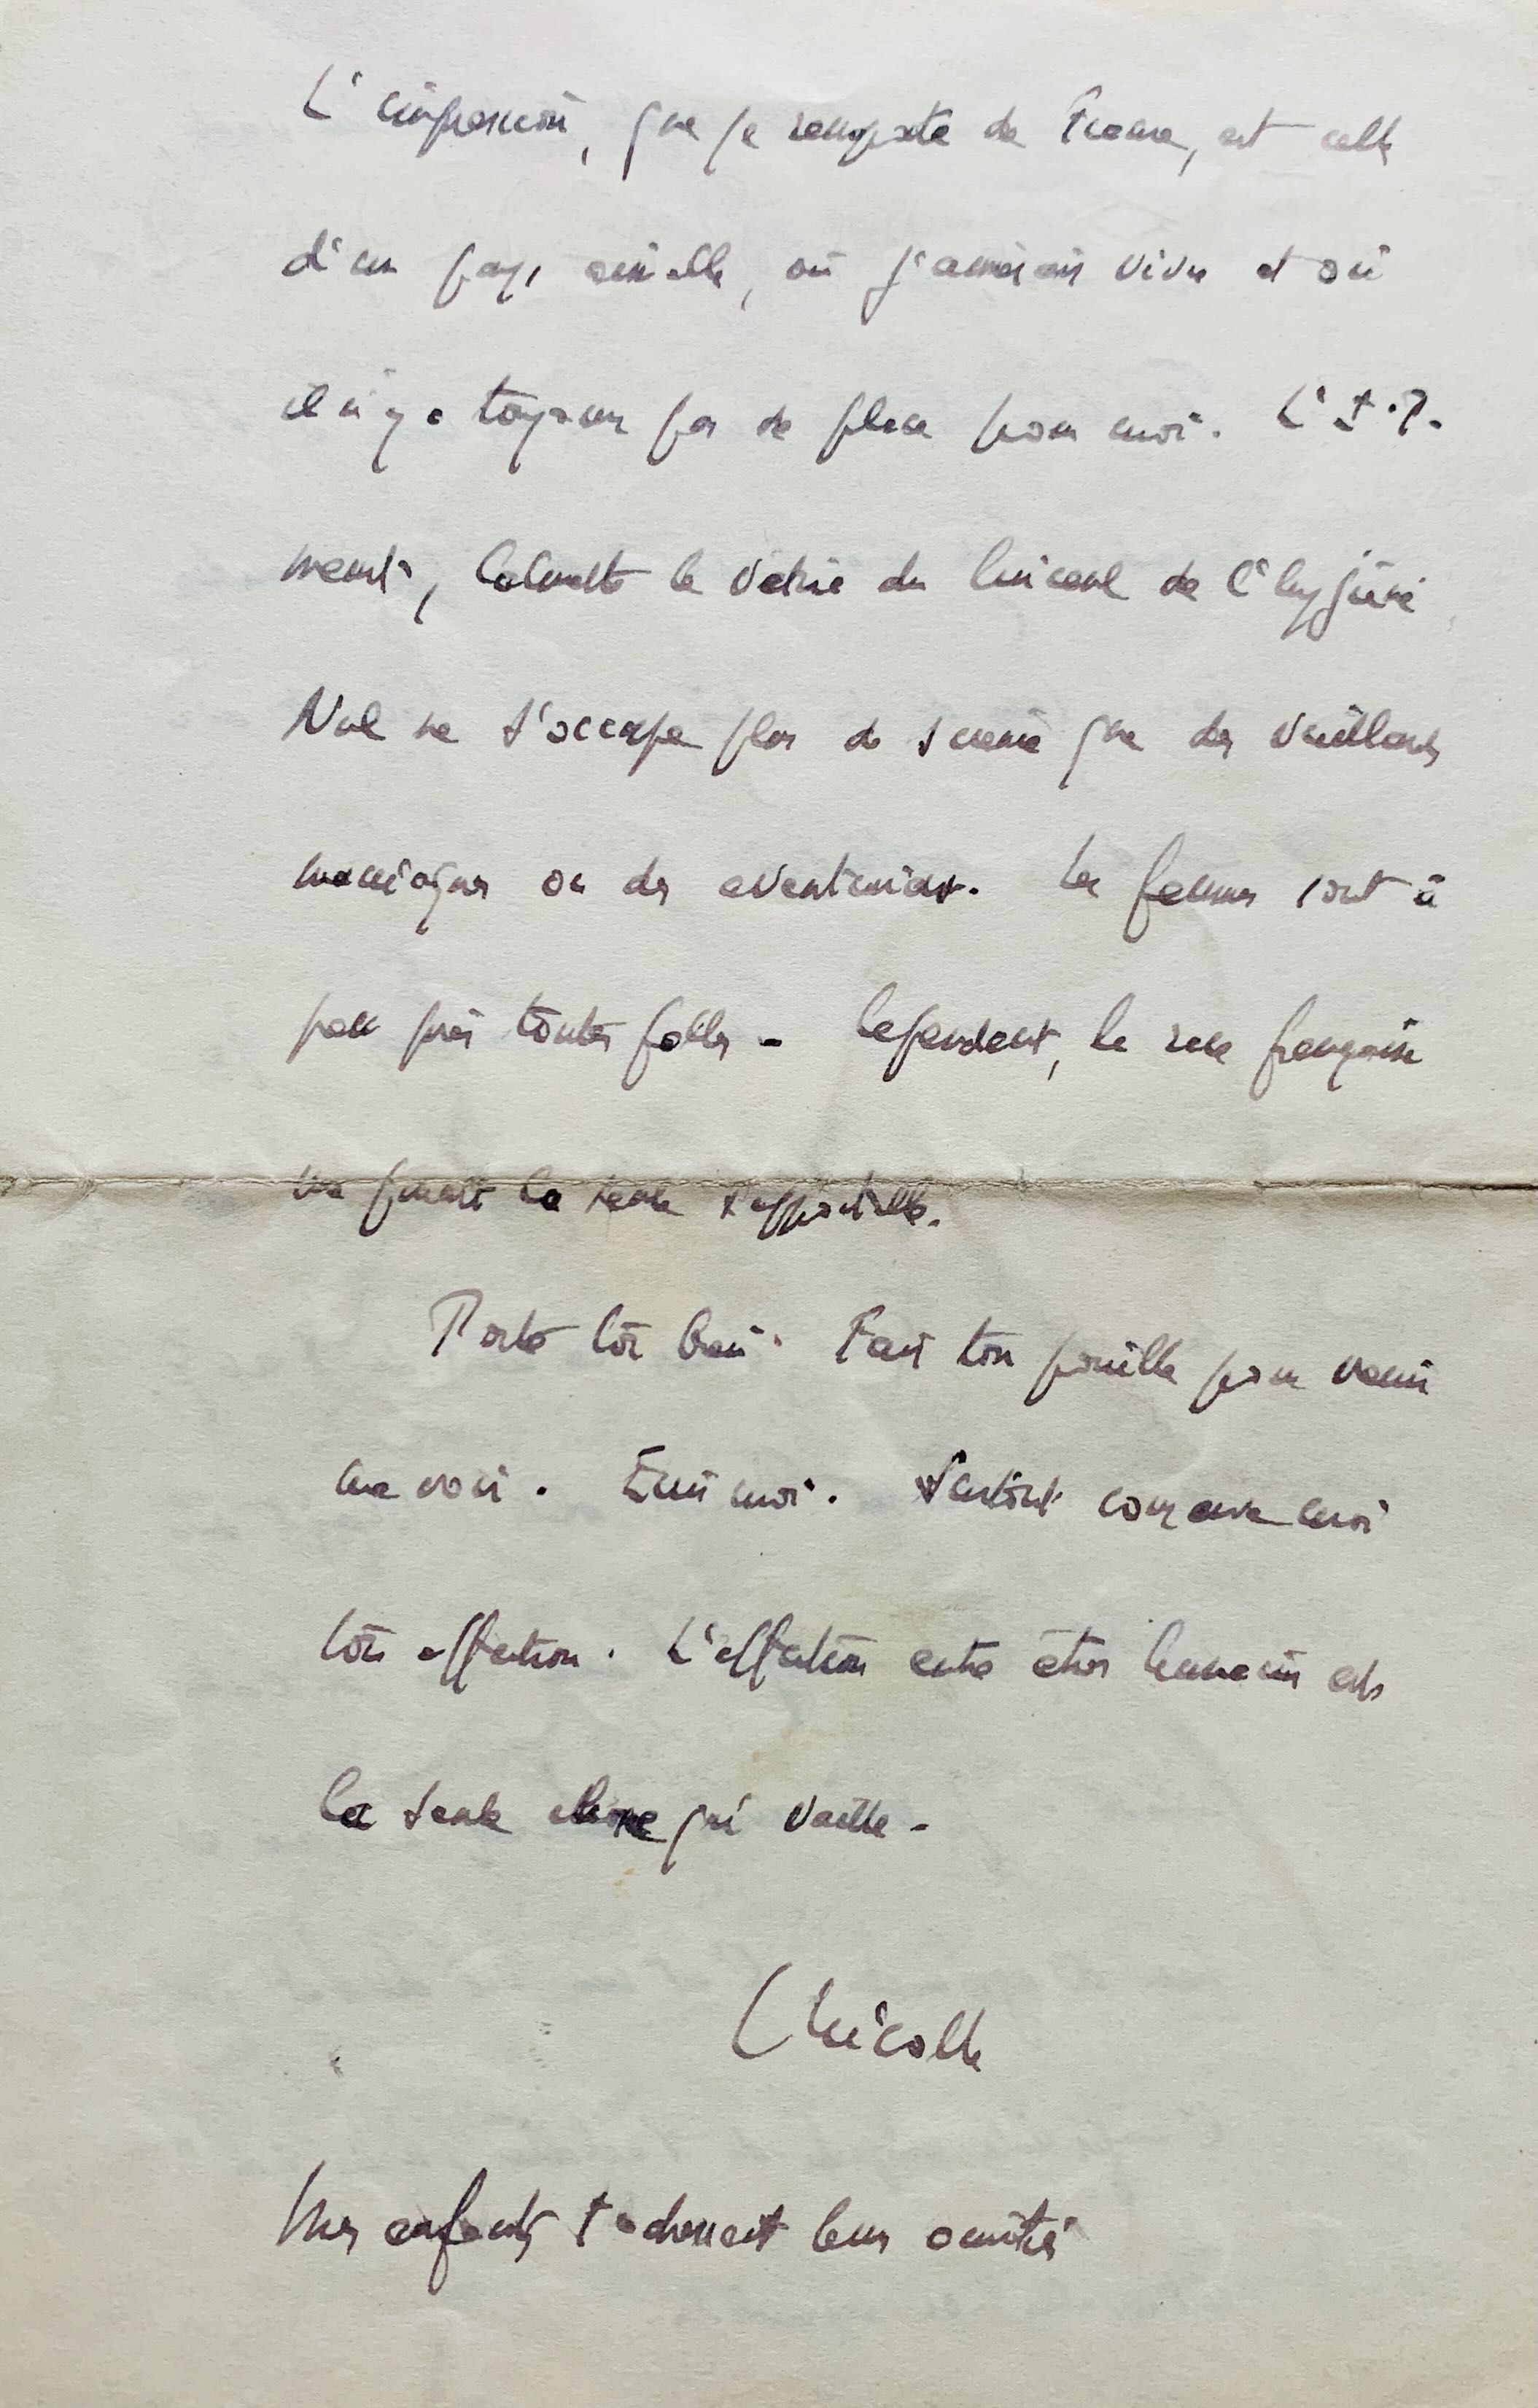 L'impression, que je remporte de France, est celle
d'un pays où j'aimerais vivre et où
il n'y a toujours pas de place pour moi. L'I.P.
meurt, Calmette le vétérinaire du linceul de l'hygiène
Nul ne s'occupe plus de science que des vieillards
maniaques ou des aventuriers. Les femmes sont à
peu près toutes folles. Cependant, la race française
me paraît la seule supportable.
Porte toi bien. Fais ton possible pour venir
me voir. Écris moi. Surtout conserve moi
ton affection. L'affection entre êtres humains est
la seule chose qui vaille.
C Nicolle
Mes enfants t'adressent leurs amitiés